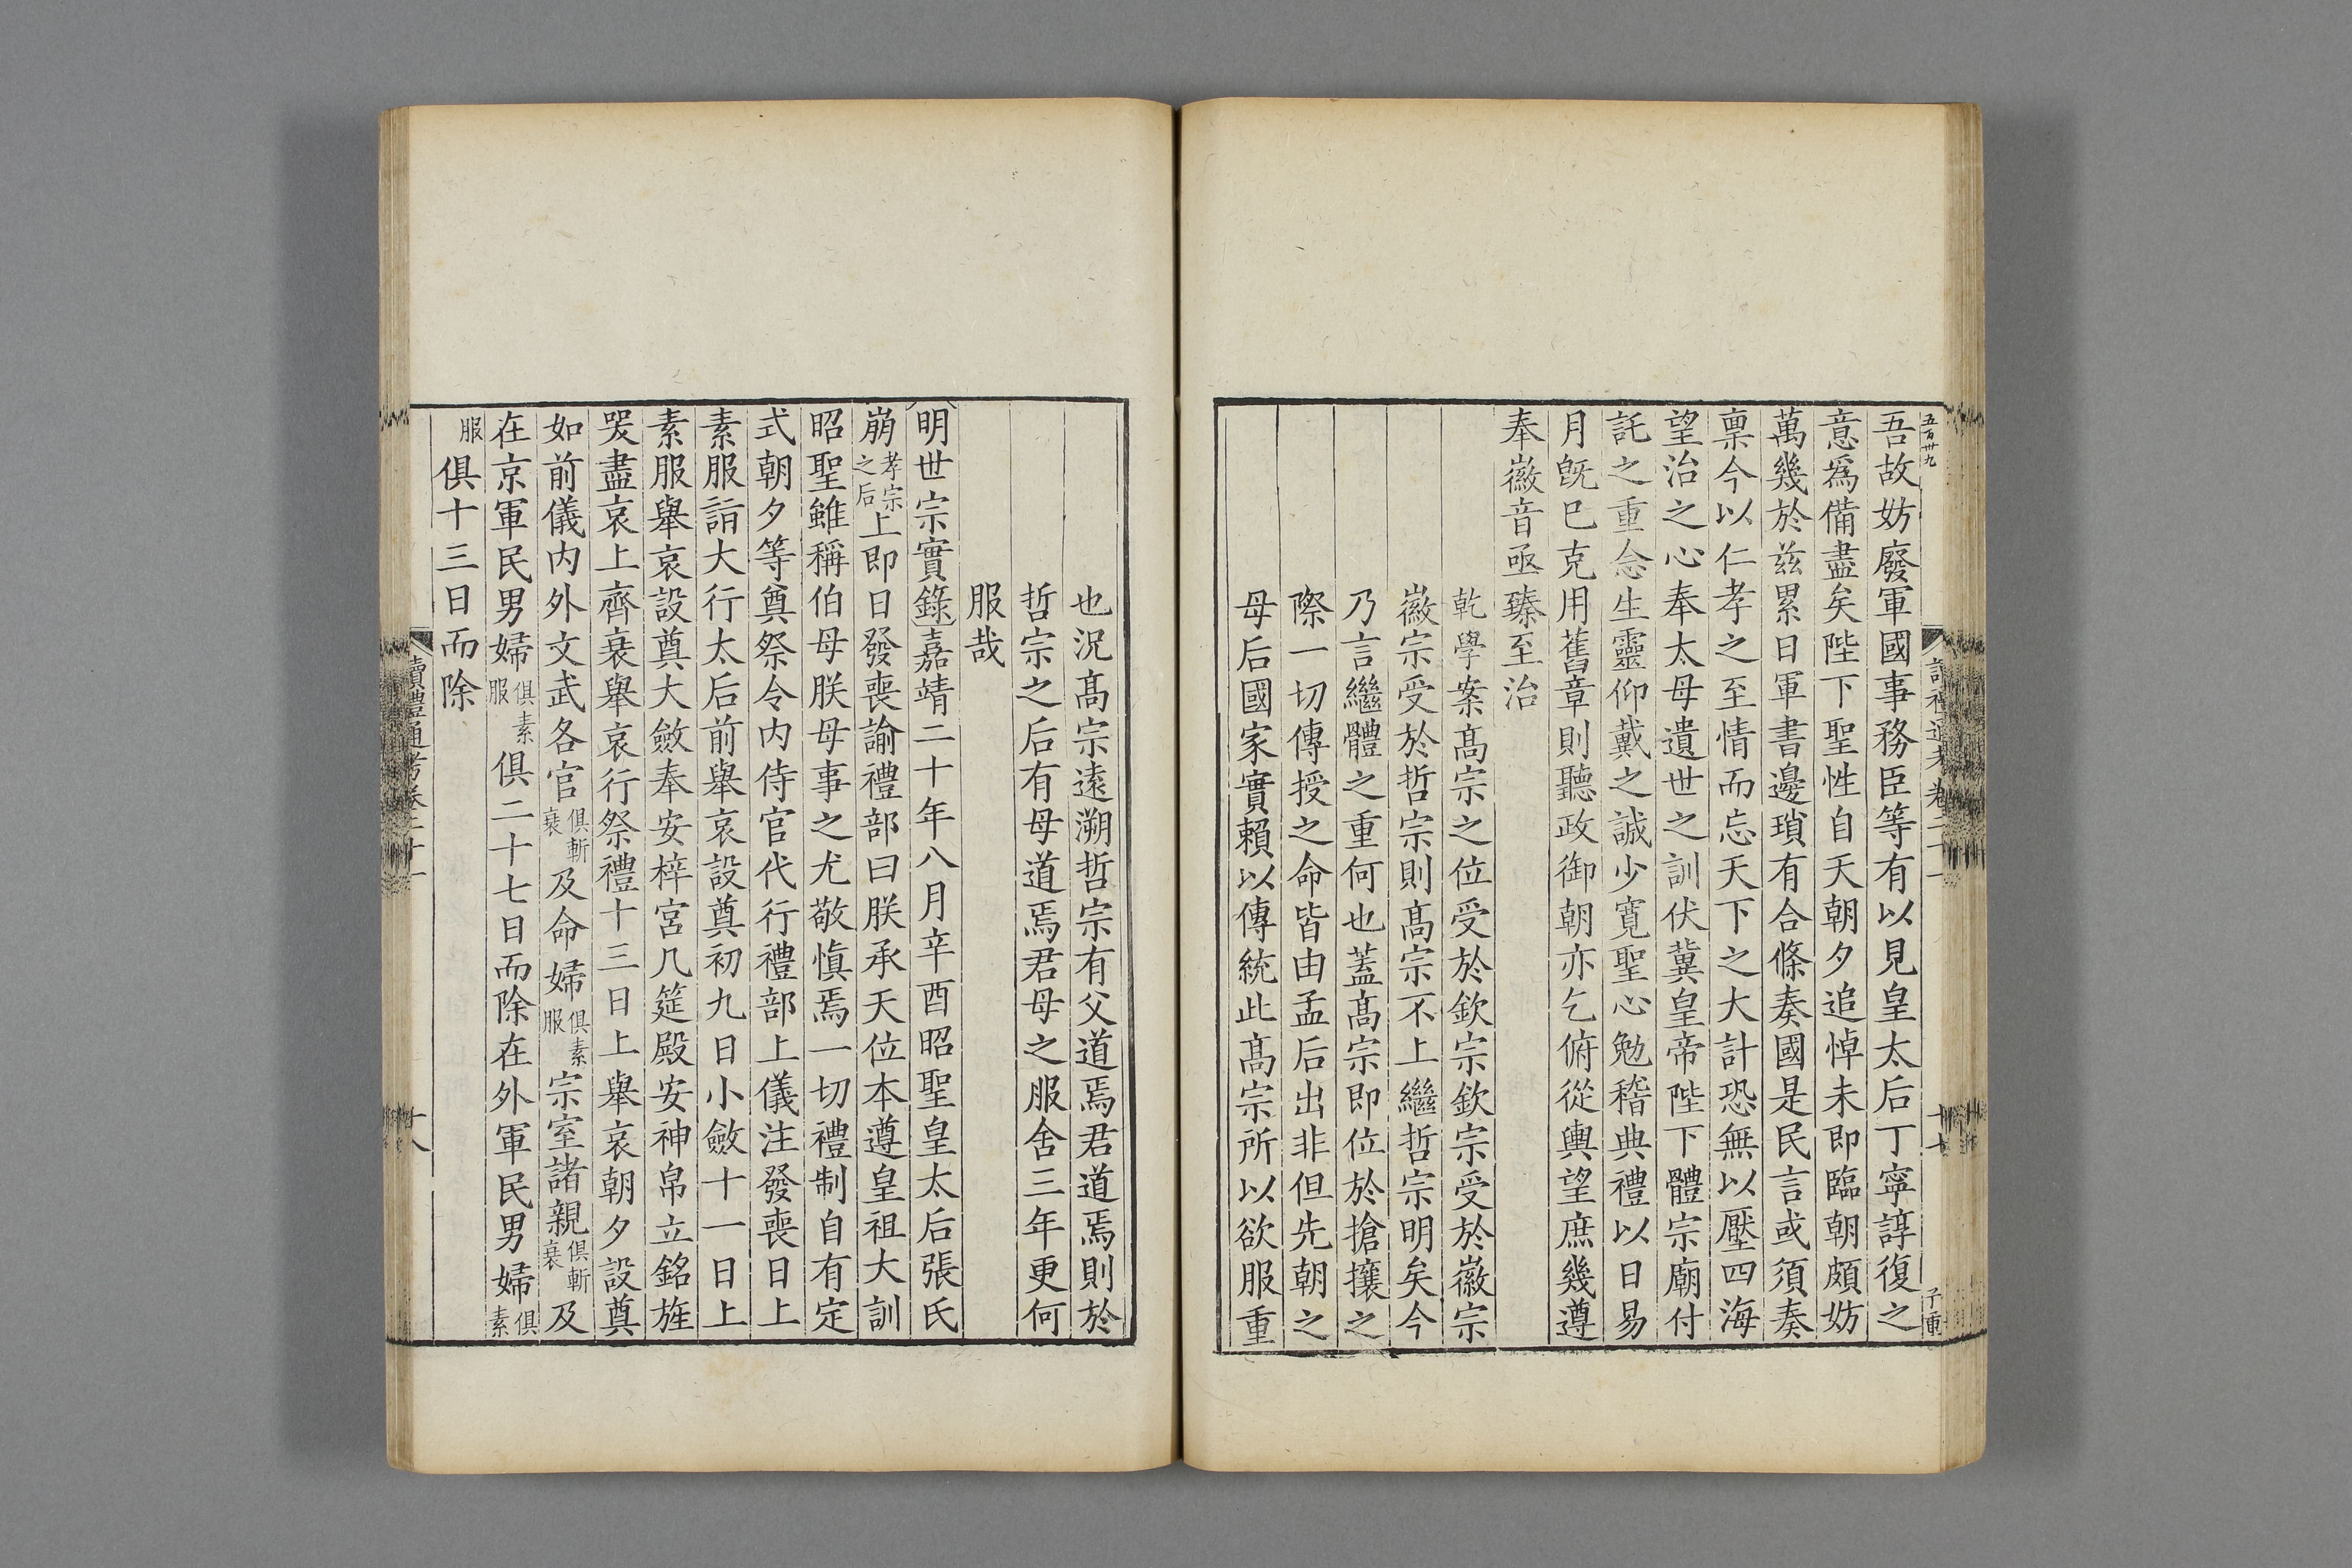 五百卅九
吾故妨廢軍國事務臣等有以見皇太后丁寧諄復之
意爲備盡矣陛下聖性自天朝夕追悼未即臨朝頗妨
萬幾於兹累日軍書邊瑣有合條奏國是民言或須奏
稟今以仁孝之至情而忘天下之大計恐無以壓四海
望治之心奉太母遺世之訓伏冀皇帝陛下體宗廟付
託之重念生靈仰戴之誠少寬聖心勉稽典禮以日易
月旣已克用舊章則聽政御朝亦乞俯從輿望庶幾遵
奉徽音亟臻至治
乾學案髙宗之位受於欽宗欽宗受於徽宗
徽宗受於哲宗則髙宗不上繼哲宗明矣今
乃言繼體之重何也蓋髙宗即位於搶攘之
際一切傳授之命皆由孟后出非但先朝之
母后國家實賴以傳統此髙宗所以欲服重
也況髙宗遠溯哲宗有父道焉君道焉則於
哲宗之后有母道焉君母之服舍三年更何
服哉
明世宗實錄嘉靖二十年八月辛酉昭聖皇太后張氏
崩孝宗之后上即日發喪諭禮部曰朕承天位本遵皇祖大訓
昭聖雖稱伯母朕母事之尤敬愼焉一切禮制自有定
式朝夕等奠祭令内侍官代行禮部上儀注發喪日上
素服詣大行太后前舉哀設奠初九日小斂十一日上
素服舉哀設奠大斂奉安梓宮几筵殿安神帛立銘旌
哭盡哀上齊衰舉哀行祭禮十三日上舉哀朝夕設奠
如前儀内外文武各官俱斬衰及命婦俱素服宗室諸親俱斬衰及
在京軍民男婦俱素服俱二十七日而除在外軍民男婦俱素
服俱十三日而除
讀禮通考卷二十一
十八